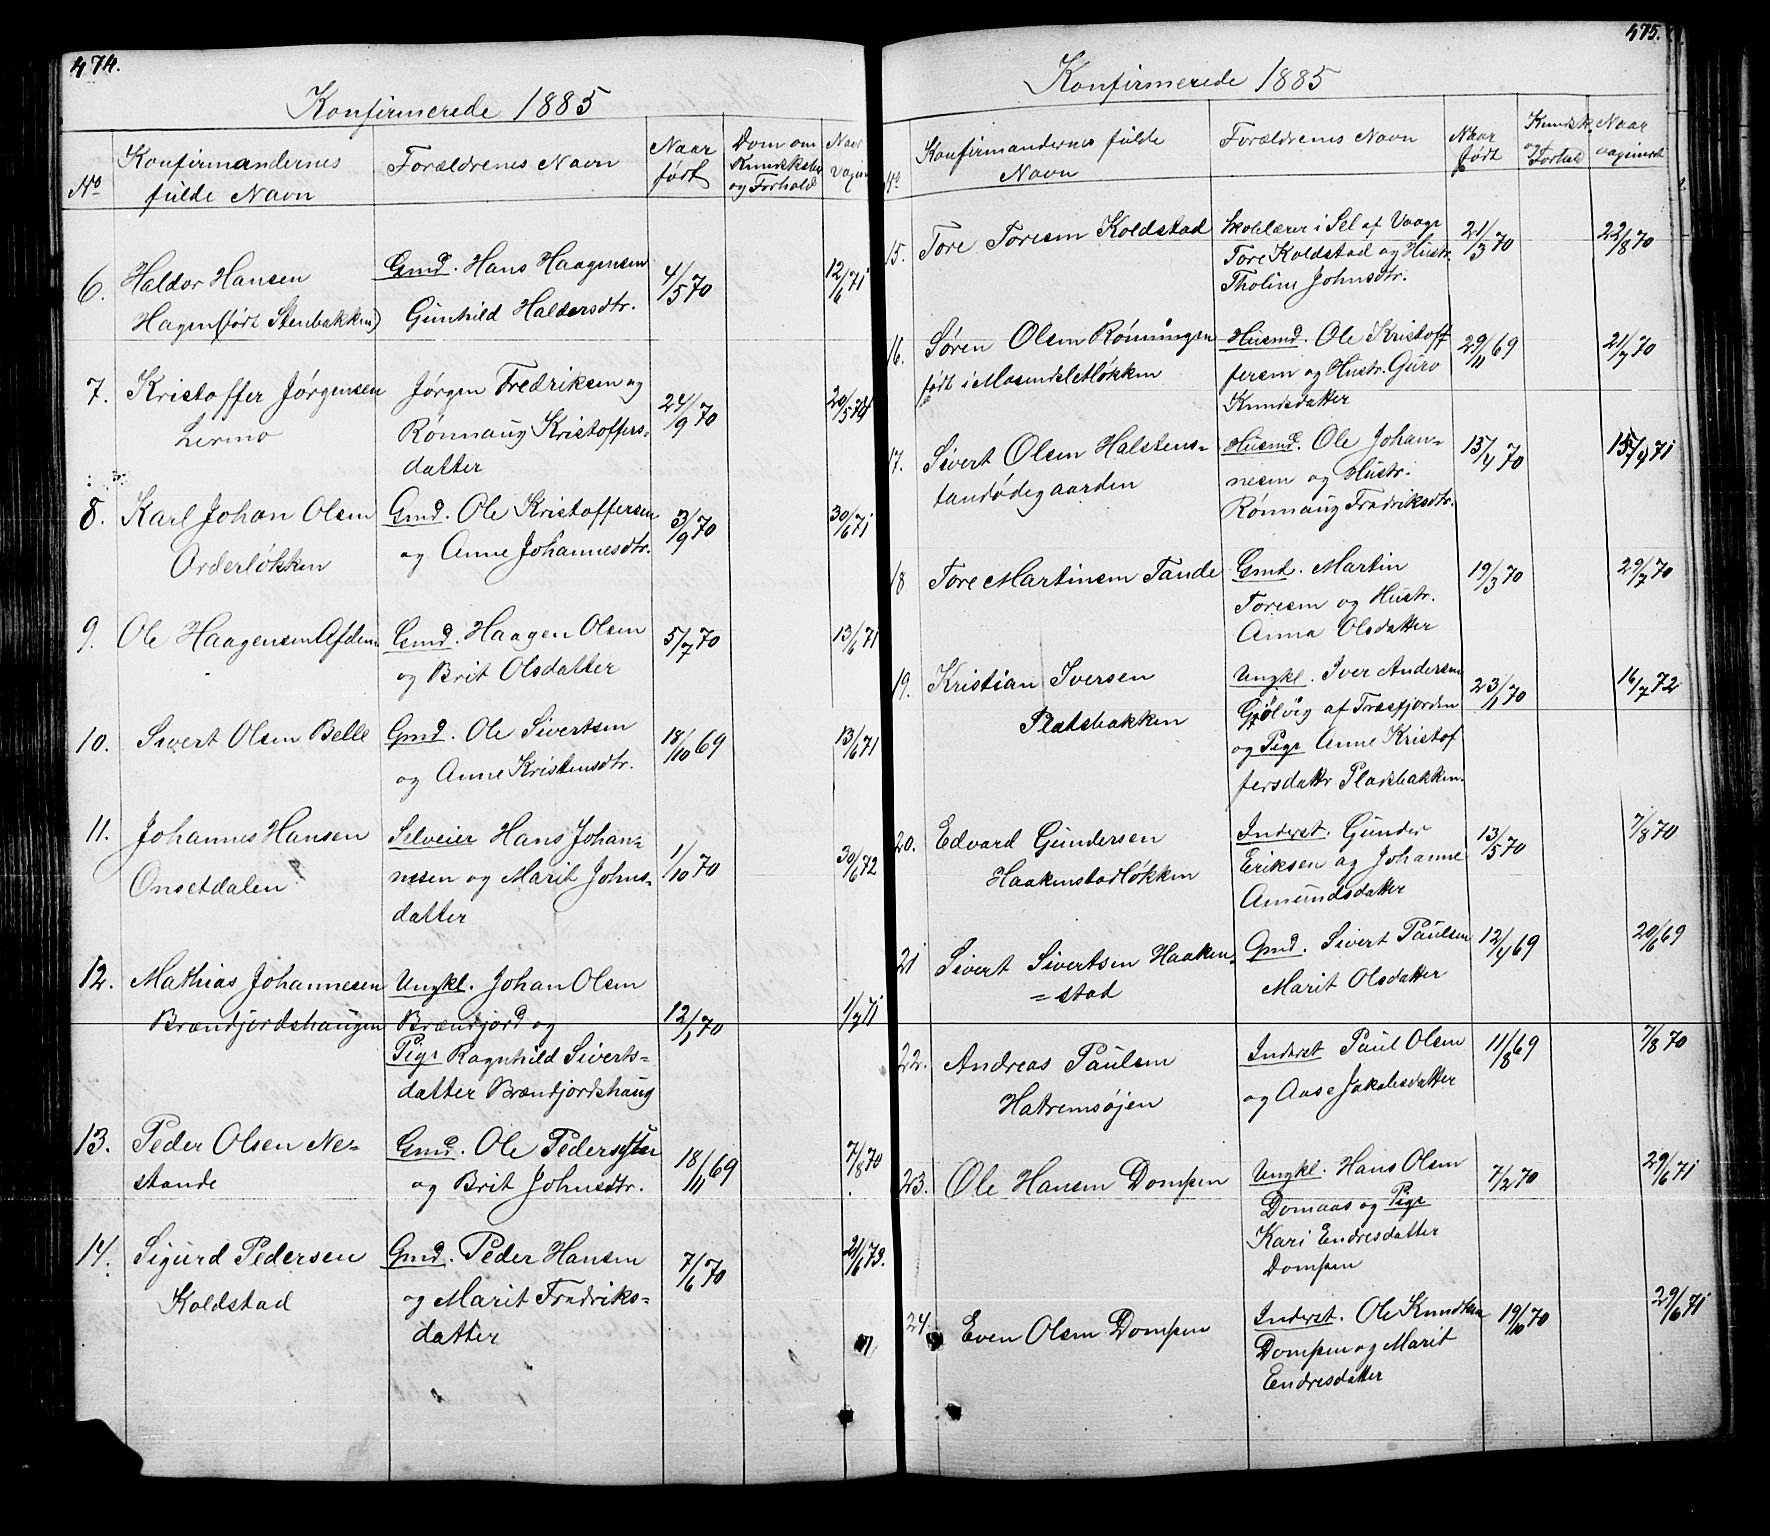 474.
Konfirmerede 1885
No
Konfirmandernes
fulde Navn
Forældrenes Navn
Naar
født
Dom om
Kundskaber
og Forhold
Naar
vaxin
6.
Haldor Hansen
Hagen (født Stenbakken)
Gmd. Hans Haagensen
Gunhild Haldorsdtr.
4/5 70
12/6 71
7.
Kristoffer Jørgensen
Lermo
Jørgen Fredriksen og
Rønnaug Kristoffers-
datter
24/9 70
20/5 74
8.
Karl Johan Olsen
Orderløkken
Gmd. Ole Kristoffersen
og Anne Johannesdtr.
3/9 70
30/6 71
9.
Ole Haagensen Afdem
Gmd. Haagen Olsen
og Brit Olsdatter
5/7 70
13/6 71
10.
Sivert Olsen Belle
Gmd. Ole Sivertsen
og Anne Kristensdtr.
18/10 69
13/6 71
11.
Johannes Hansen
Onsetdalen
Selveier Hans Johan-
nesen og Marit Johns-
datter
1/10 70
30/6 72
12.
Mathias Johannesen
Brændjordshaugen
Ungkl. Johan Olsen
Brændjord og
Pige Ragnhild Siverts-
datter Brændjordshaug
12/1 70
1/7 71
13.
Peder Olsen Ne-
stande
Gmd. Ole Pedersen
og Brit Johnsdtr.
18/11 69
7/8 70
14.
Sigurd Pedersen
Koldstad
Gmd. Peder Hansen
og Marit Fredriks-
datter
7/6 70
21/6 73.
475.
Konfirmerede 1885
No
Konfirmandernes fulde
Navn
Forældrenes Navn
Naar
født
Kundsk.
og Forhal
Naar
vaxineret
15.
Tore Toresen Koldstad
Skolelærer i Sel af Vaage
Tore Koldstad og Hustr.
Tholine Johnsdtr.
21/3 70
22/8 70
16.
Søren Olsen Rønningen
født i Mosendeletløkken
Husmd. Ole Kristoff
fersen og Hustr. Guro
Knudsdatter
29/11 69
21/7 70
17.
Sivert Olsen Halstens-
tandødegaarden
Husmd. Ole Johan-
nesen og Hustr.
Rønnaug Fredriksdtr.
15/4 70
15/4 71
18
Tore Martinsen Tande
Gmd. Martin
Toresen og Hustr.
Anna Olsdatter
19/3 70
29/7 70
19.
Kristian Iversen
Pladsbakken
Ungkl. Iver Andersen
Gjølvig af Træsfjorden
og Pige Anne Kristof
fersdattr Pladsbakken.
23/1 70
16/7 72
20.
Edvard Gundersen
Haakenstadløkken
Inderst. Gunder
Eriksen og Johanne
Amundsdatter
13/5 70
7/8 70
21
Sivert Sivertsen Haaken-
=stad
Gmd. Sivert Paulsen
Marit Olsdatter
12/4 69
20/6 69
22.
Andreas Paulsen
Hatremsøjen
Inderst Paul Olsen
og Aase Jakobsdatter
11/8 69
7/8 70
23.
Ole Hansen Dompen
Ungkl. Hans Olsen
Domaas og Pige
Kari Endresdatter
Dompen
7/2 70
29/6 71
24.
Even Olsen Dompen
Inderst. Ole Knudsen
Dompen og Marit
Endresdatter
19/10 70
29/6 71